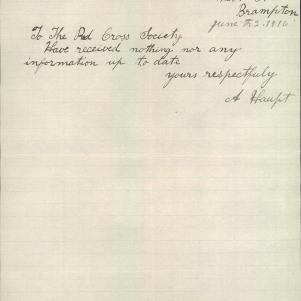 Brampton
June
To The Red Cross Society
Have received nothing nor any
information up to date
yours respectfuly
A Haupt